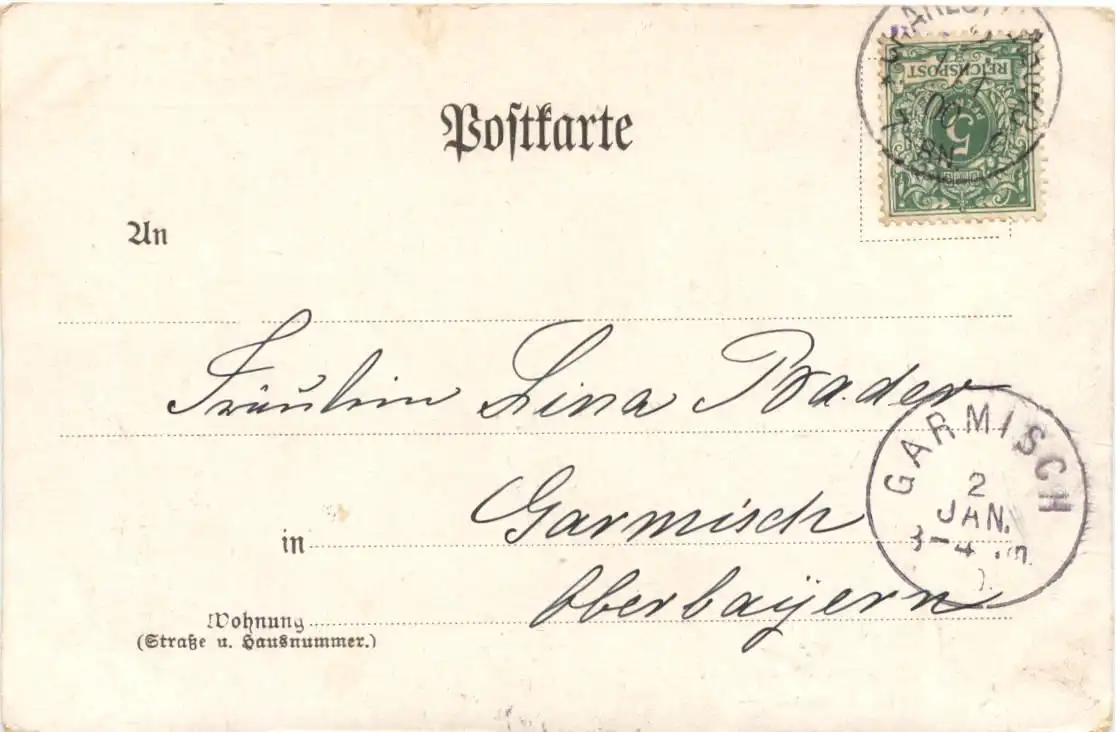 Postkarte
REICHSPOST
5
00
8N
An
Fräulein Lina Bader
GARMISCH
2
JAN.
3-4
Garmisch
in
Oberbayern
Wohnung
(Straße u. Hausnummer.)